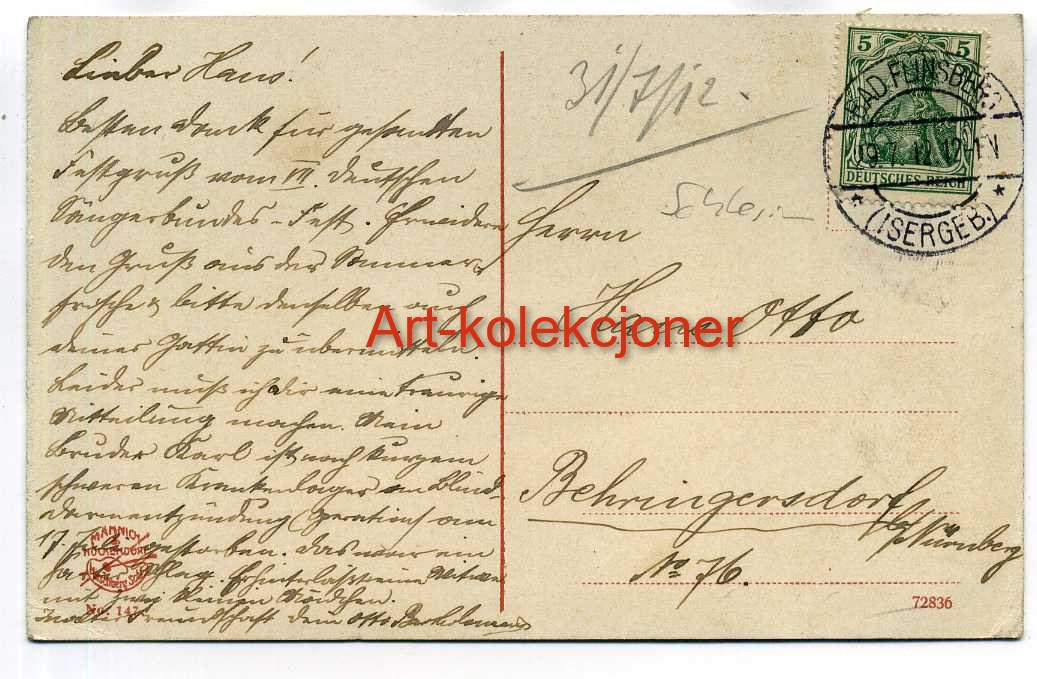 Lieber Hans!
Besten Dank für gesandten
Festgruß vom VII. Deutschen
Sängerbundes-Fest. Erwidere
den Gruß aus der Sommer-
frische & bitte denselben auch
deiner Gattin zu übermitteln.
Leider muß ich dir eine traurige
Mitteilung machen. Mein
Bruder Karl ist nach kurzem
schweren Krankenlager an Blind-
darmentzündung (Operation) am
17. gestorben. Das war ein
Schlag. Er hinterläßt eine Witwe
mit zwei kleinen Mädchen.
In alter Freundschaft dein Otto
31/7/12.
Herrn
Hans Otto
Behringersdorf
b/Nürnberg
No 76.
5 5
DEUTSCHES REICH
BAD FLINSBERG
19.7.12 12-1V
* (ISERGEB.) *
MANNICH
No. 147
72836
Art-kolekcjoner